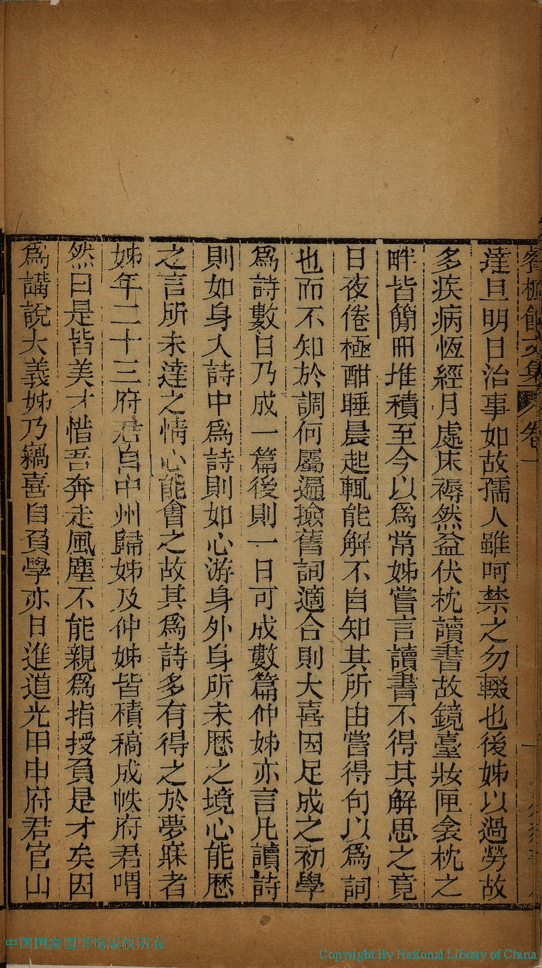 達旦明日治事如故孺人雖呵禁之勿輟也後姊以過勞故
多疾病恆經月處床褥然益伏枕讀書故鏡臺妝匣衾枕之
畔皆簡冊堆積至今以爲常姊嘗言讀書不得其解思之竟
日夜倦極酣睡晨起輒能解不自知其所由嘗得句以爲詞
也而不知於調何屬遍撿舊詞適合則大喜因足成之初學
爲詩數日乃成一篇後則一日可成數篇仲姊亦言凡讀詩
則如身入詩中爲詩則如心游身外身所未歷之境心能歷
之言所未達之情心能會之故其爲詩多有得之於夢寐者
姊年二十三府君自中州歸姊及仲姊皆積稿成帙府君喟
然曰是皆美才惜吾奔走風塵不能親爲指授負是才矣因
爲講說大義姊乃竊喜自負學亦日進道光甲申府君官山
中国国家图书馆版权所有
Copyright By National Library of China